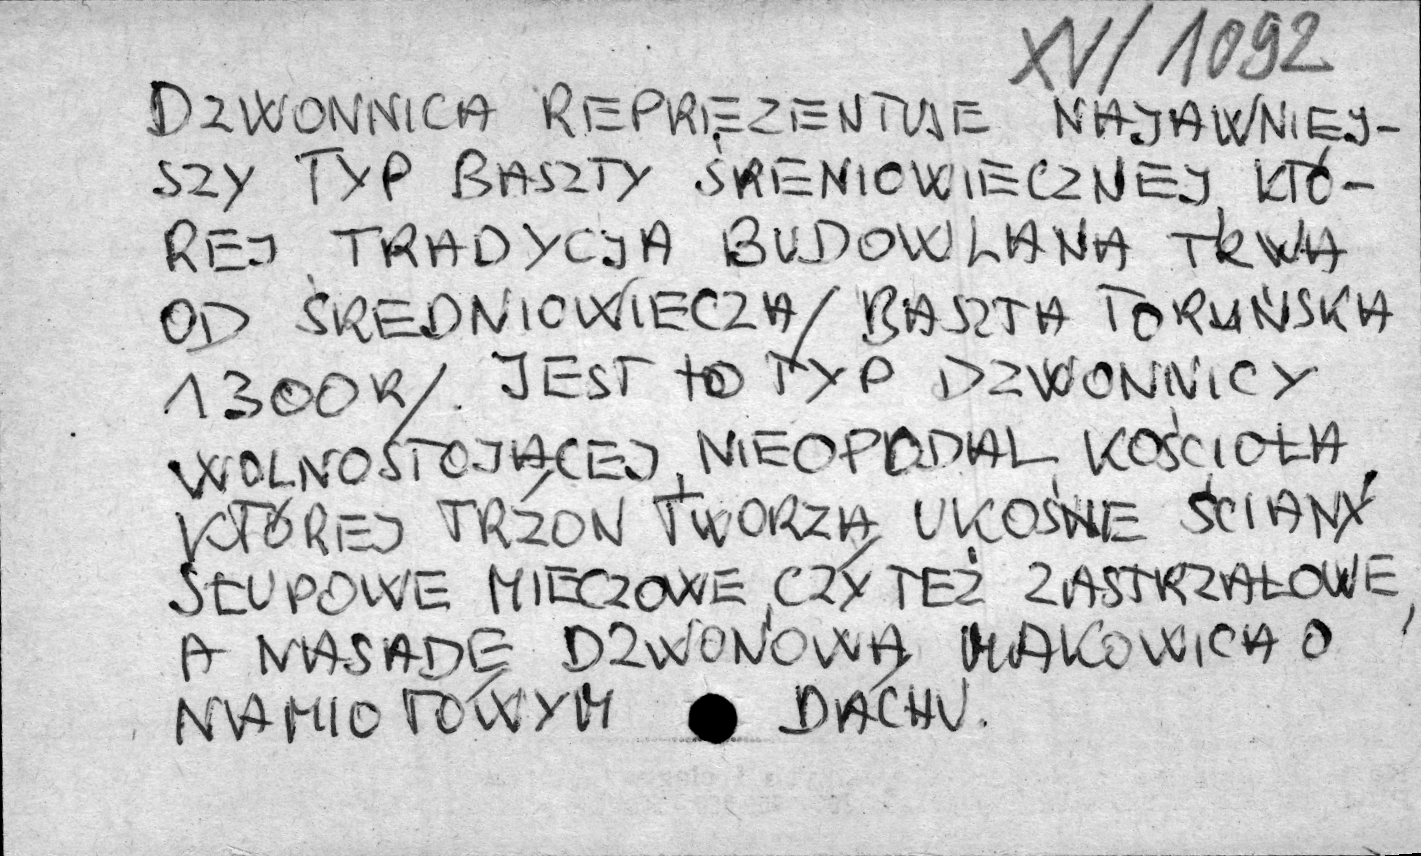 XV/1092
DZWONNICA REPREZENTUJE NAJAWNIEJ-
SZY TYP BASZTY ŚRENIOWIECZNEJ, KTÓ-
REJ TRADYCJA BUDOWLANA TRWA
OD ŚREDNIOWIECZA/BASZTA TORUŃSKA
1300R/. JEST to TYP DZWONNICY
WOLNOSTOJĄCEJ, NIEOPODAL KOŚCIOŁA,
KTÓREJ TRZON TWORZĄ UKOŚNE ŚCIANY
SŁUPOWE MIECZOWE, CZY TEŻ ZASTRZAŁOWE,
A NASADĘ DZWONOWĄ MAKOWICA O
NAMIOTOWYM DACHU.